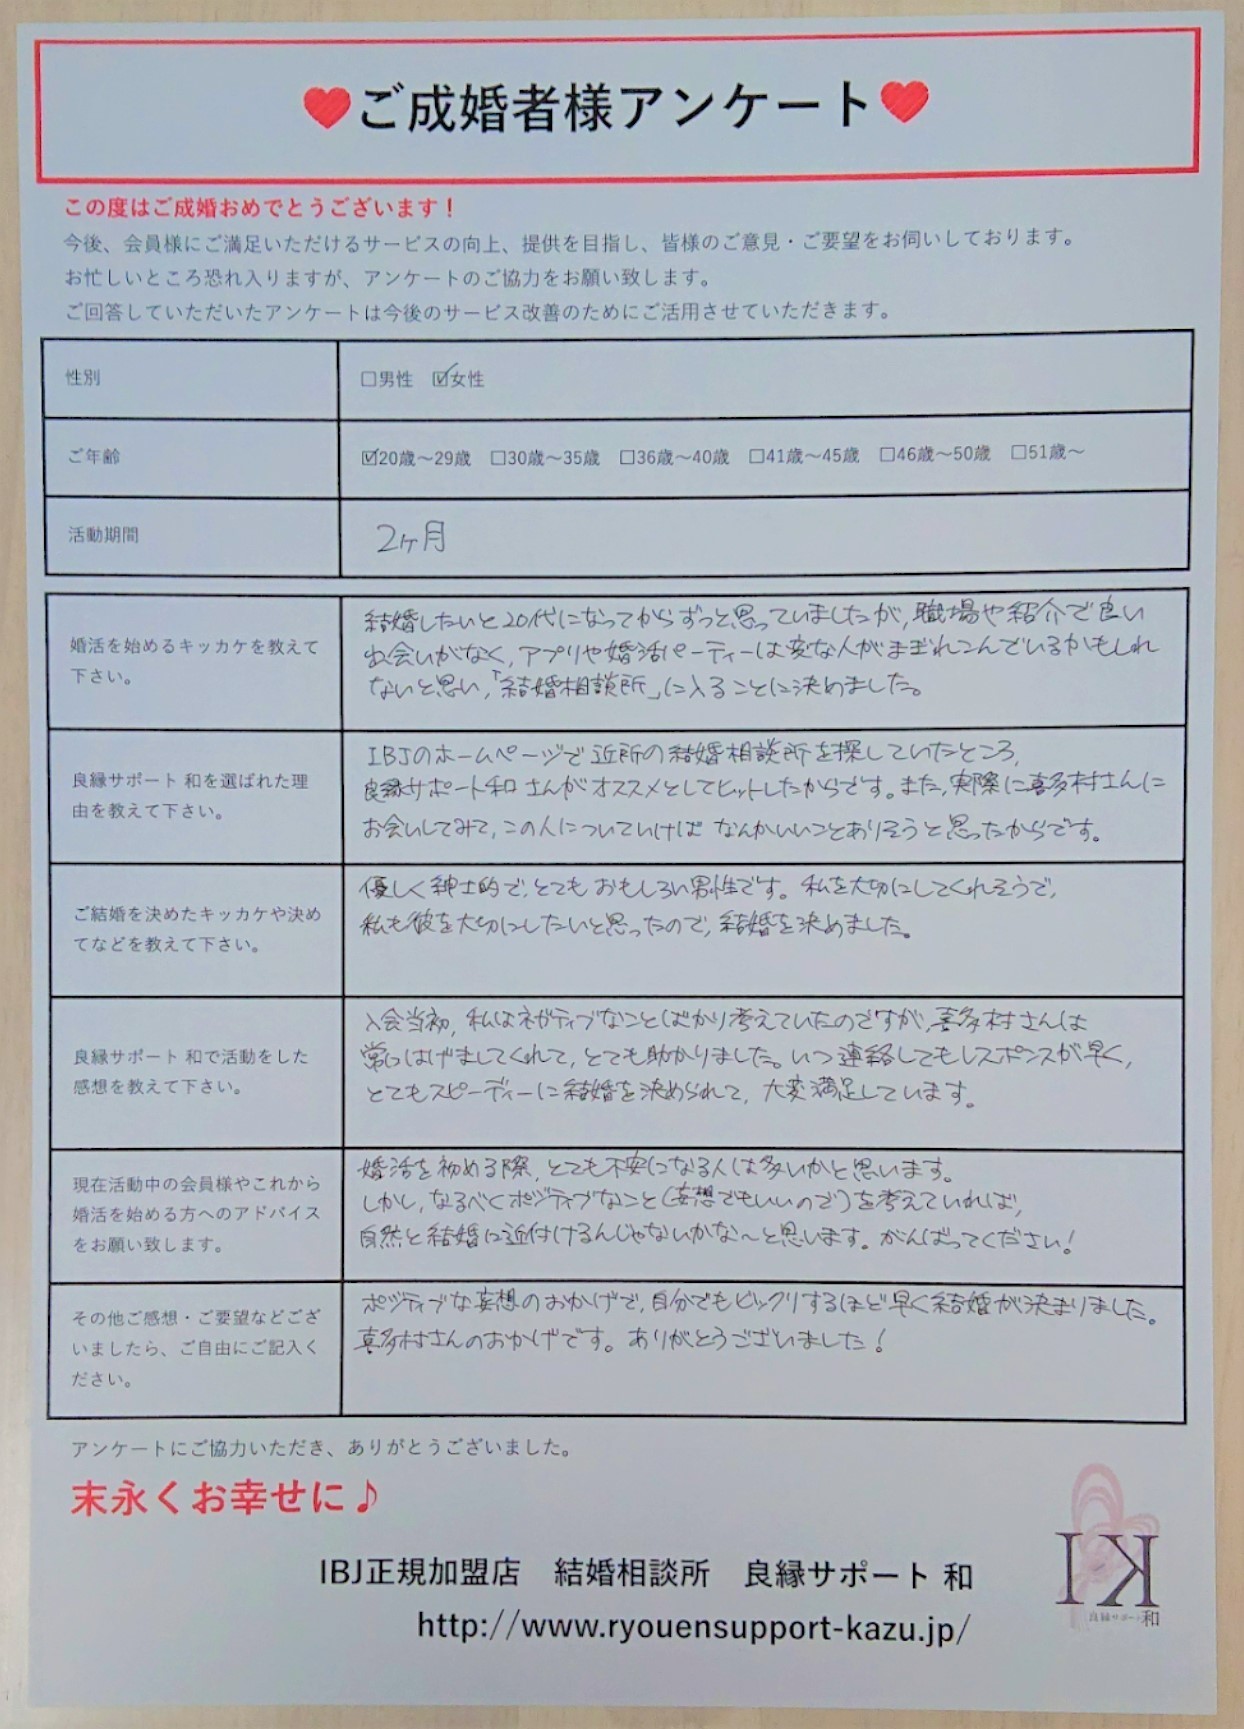 ご成婚者様アンケート
この度はご成婚おめでとうございます!
今後、会員様にご満足いただけるサービスの向上、提供を目指し、皆様のご意見・ご要望をお伺いしております。
お忙しいところ恐れ入りますが、アンケートのご協力をお願い致します。
ご回答していただいたアンケートは今後のサービス改善のためにご活用させていただきます。
性別
□男性 ☑女性
ご年齢
☑20歳〜29歳 □30歳〜35歳 □36歳〜40歳 □41歳〜45歳 □46歳〜50歳 □51歳〜
活動期間
2ヶ月
婚活を始めるキッカケを教えて
下さい。
結婚したいと20代になってからずっと思っていましたが、職場や紹介で良い
出会いがなく、アプリや婚活パーティーは変な人がまぎれこんでいるかもしれ
ないと思い、「結婚相談所」に入ることに決めました。
良縁サポート 和を選ばれた理
由を教えて下さい。
IBJのホームページで近所の結婚相談所を探していたところ、
良縁サポート和さんがオススメとしてヒットしたからです。また、実際に喜多村さんに
お会いしてみて、この人についていけばなんかいいことありそうと思ったからです。
ご結婚を決めたキッカケや決め
てなどを教えて下さい。
優しく紳士的で、とてもおもしろい男性です。私を大切にしてくれそうで、
私も彼を大切にしたいと思ったので、結婚を決めました。
良縁サポート 和で活動をした
感想を教えて下さい。
入会当初、私はネガティブなことばかり考えていたのですが、喜多村さんは
常にはげましてくれて、とても助かりました。いつ連絡してもレスポンスが早く、
とてもスピーディーに結婚を決められて、大変満足しています。
現在活動中の会員様やこれから
婚活を始める方へのアドバイス
をお願い致します。
婚活を初める際、とても不安になる人は多いかと思います。
しかし、なるべくポジティブなこと(妄想でもいいので)を考えていれば、
自然と結婚に近付けるんじゃないかな〜と思います。がんばってください!
その他ご感想・ご要望などござ
いましたら、ご自由にご記入く
ださい。
ポジティブな妄想のおかげで、自分でもビックリするほど早く結婚が決まりました。
喜多村さんのおかげです。ありがとうございました!
アンケートにご協力いただき、ありがとうございました。
末永くお幸せに♪
IBJ正規加盟店 結婚相談所 良縁サポート 和
http://www.ryouensupport-kazu.jp/
良縁サポート和